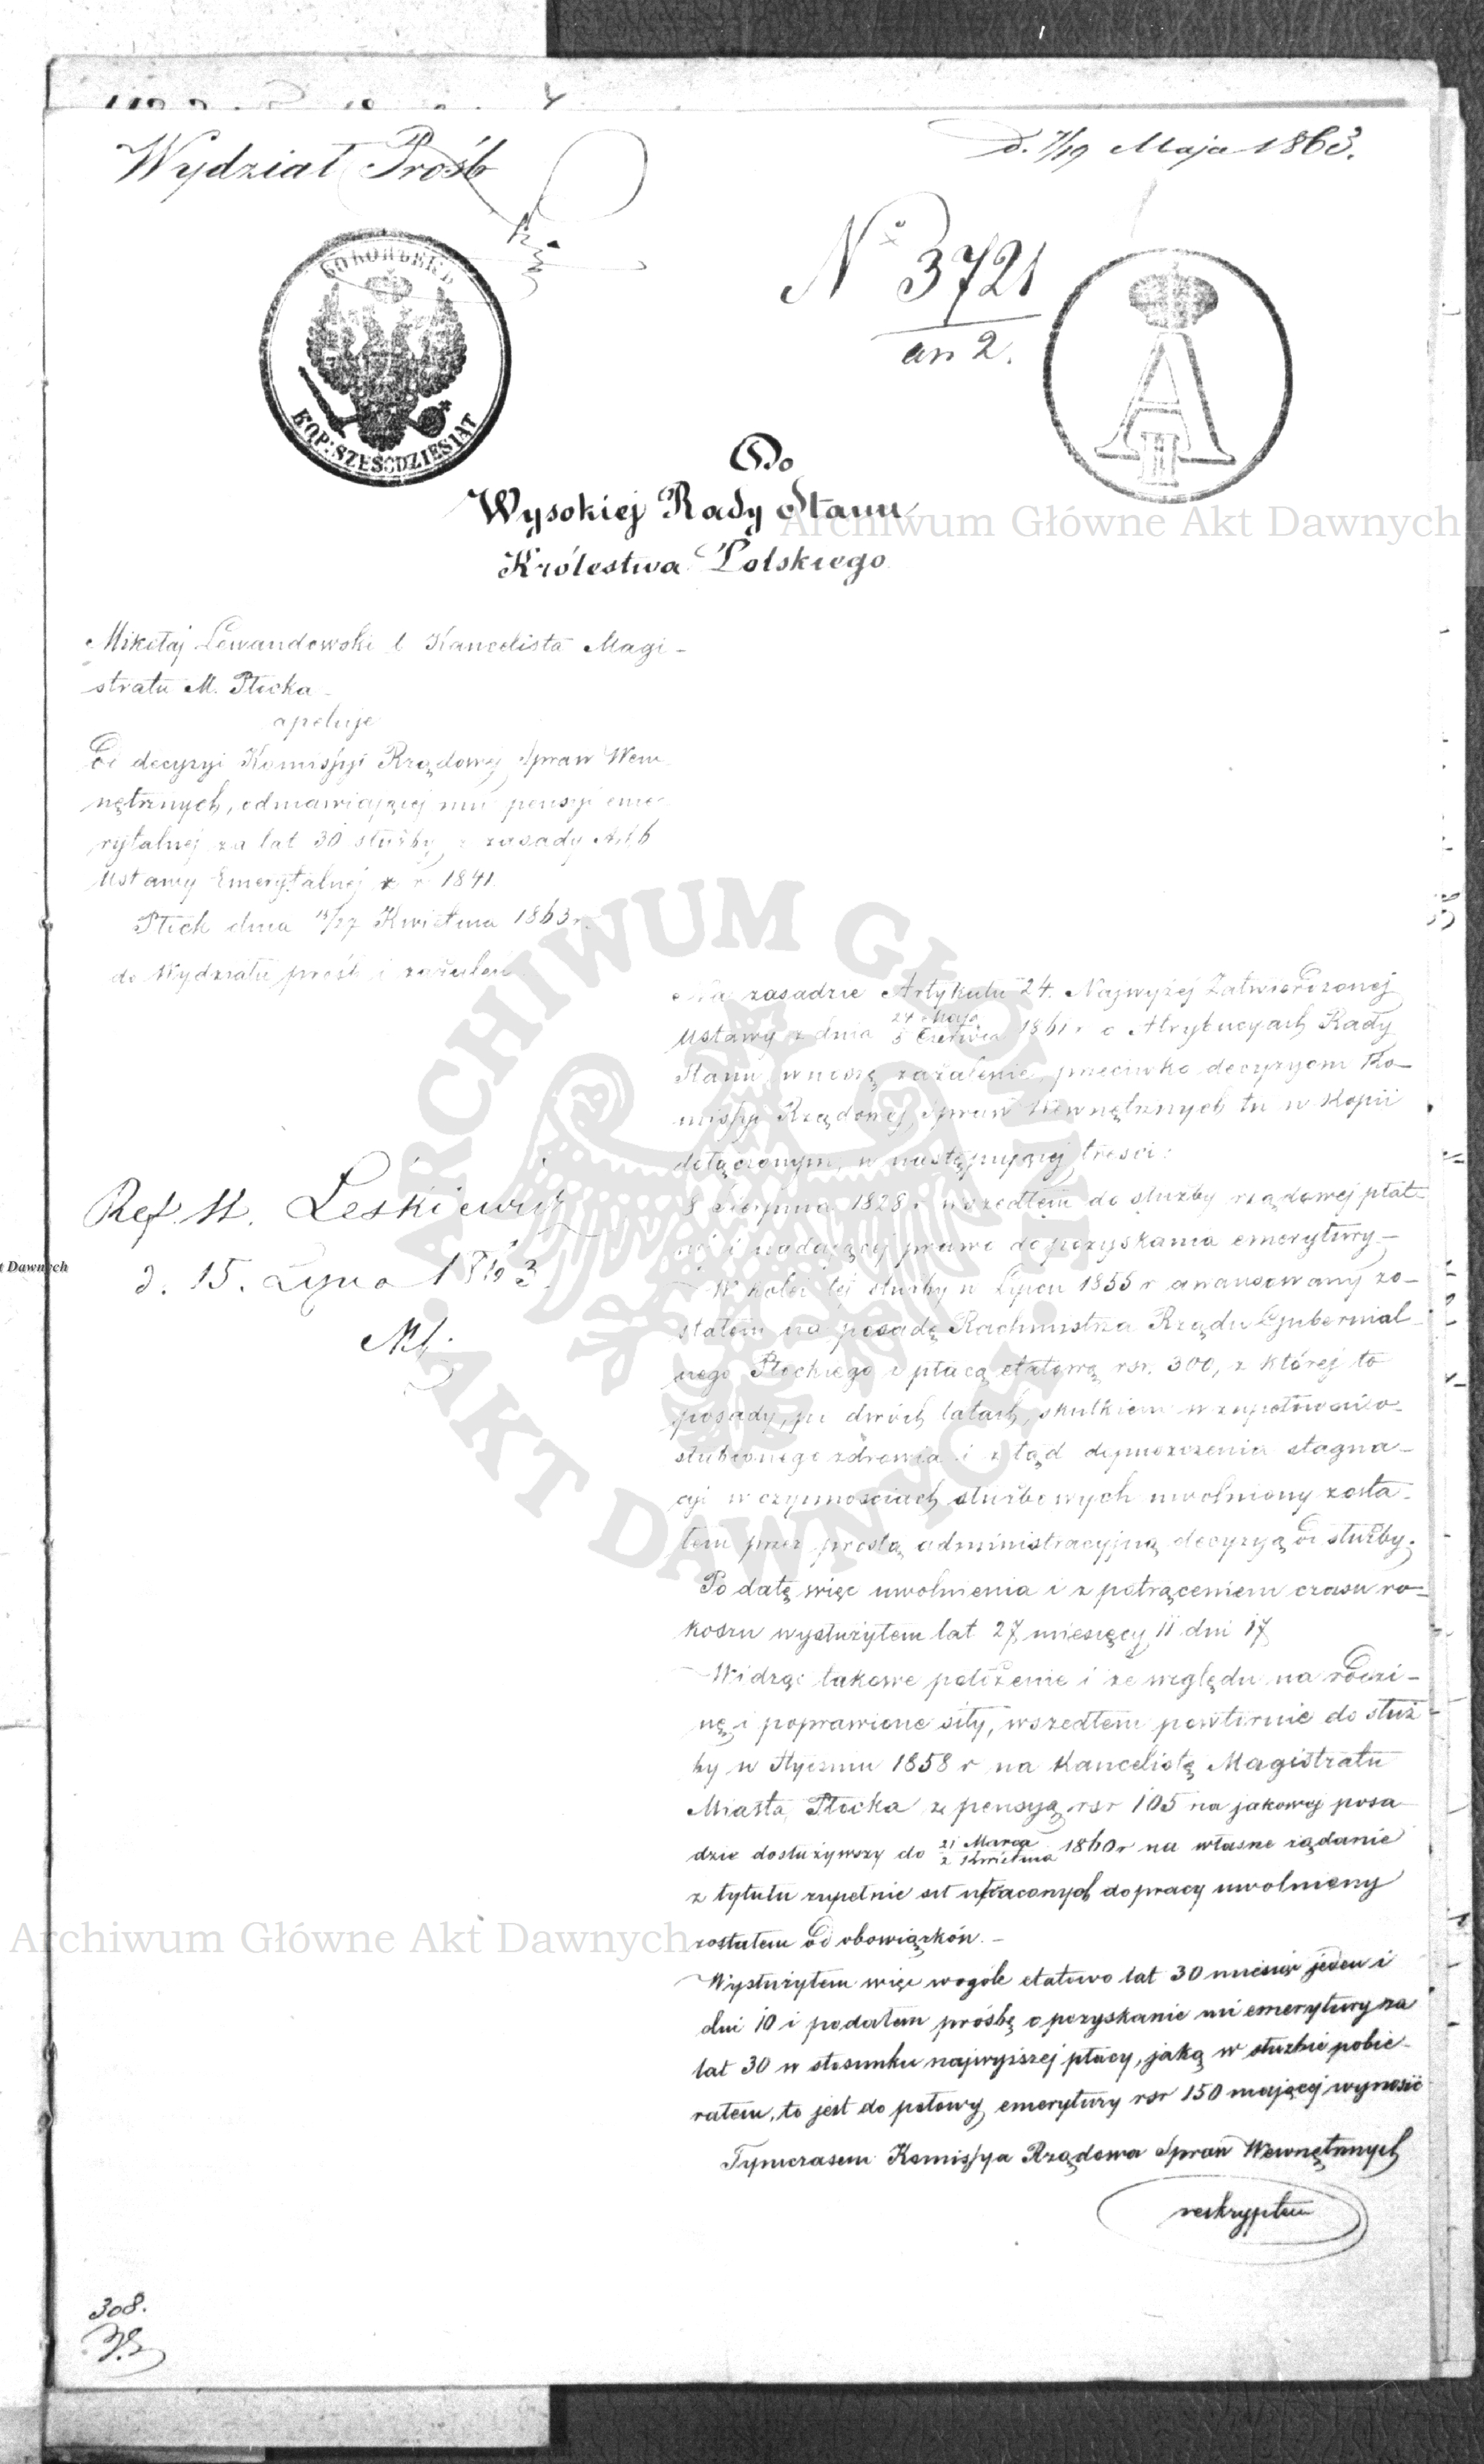 Wydział Próśb
D. 7/19 Maja 1863.
No 3721
an 2.
KOP: SZEŚĆDZIESIAT
Do
Wysokiej Rady Stanu
Królestwa Polskiego
Mikołaj Lewandowski b Kancelista Magi-
stratu M. Płocka
apeluje
Od decyzyi Komissyi Rządowej Spraw Wew
nętrznych, odmawiającej mu pensyi eme-
rytalnej za lat 30 służby z zasady Art. 6
Ustawy Emerytalnej z r 1841
Płock dnia 15/27 Kwietnia 1863 r.
do Wydziału próśb i zażaleń
Na zasadzie Artykułu 24. Najwyżej Zatwierdzonej
Ustawy z dnia 24 Maja / 5 Czerwca 1861 r o Atrybucyach Rady
Stanu, wnoszę zażalenie przeciwko decyzyom Ko-
missyi Rządowej Spraw Wewnętrznych tu w kopii
dołączonym, w następującej treści:
8 Sierpnia 1828 r wszedłem do służby rządowej płat-
nej i nadającej prawo do pozyskania emerytury.-
W kolei tej służby w Lipcu 1855 r awansowany zo-
stałem na posadę Rachmistrza Rządu Gubernial-
nego Płockiego z płacą etatową rsr. 300, z której to
posady, po dwóch latach, skutkiem
zdrowia i ztąd dopuszczenia stagna-
cyi w czynnościach służbowych uwolniony zosta-
łem przez prostą administracyjną decyzyą od służby.
Po datę więc uwolnienia i z potrąceniem czasu ro-
koszu wysłużyłem lat 27 miesięcy 11 dni 17
Widząc takowe położenie i ze względu na rodzi-
nę i poprawione siły, wszedłem powtórnie do służ-
by w Styczniu 1858 r na Kancelistę Magistratu
Miasta Płocka z pensyą rsr 105 na jakowej posa-
dzie dosłużywszy do 21 Marca / 2 Kwietnia 1860 r na własne żądanie
z tytułu zupełnie sił utraconych do pracy uwolniony
zostałem od obowiązków.-
Wysłużyłem więc wogóle etatowo lat 30 miesiąc jeden i
dni 10 i podałem prośbę o pozyskanie mi emerytury za
lat 30 w stosunku najwyższej płacy, jaką w służbie pobie-
rałem, to jest do połowy emerytury rsr 150 mającej wynosić
Tymczasem Komissya Rządowa Spraw Wewnętrznych
reskryptem
Ref. St. Leskiewicz
d. 15. Lipca 1863.
308.
Archiwum Główne Akt Dawnych
Archiwum Główne Akt Dawnych
ARCHIWUM GŁÓWNE AKT DAWNYCH
t Dawnych